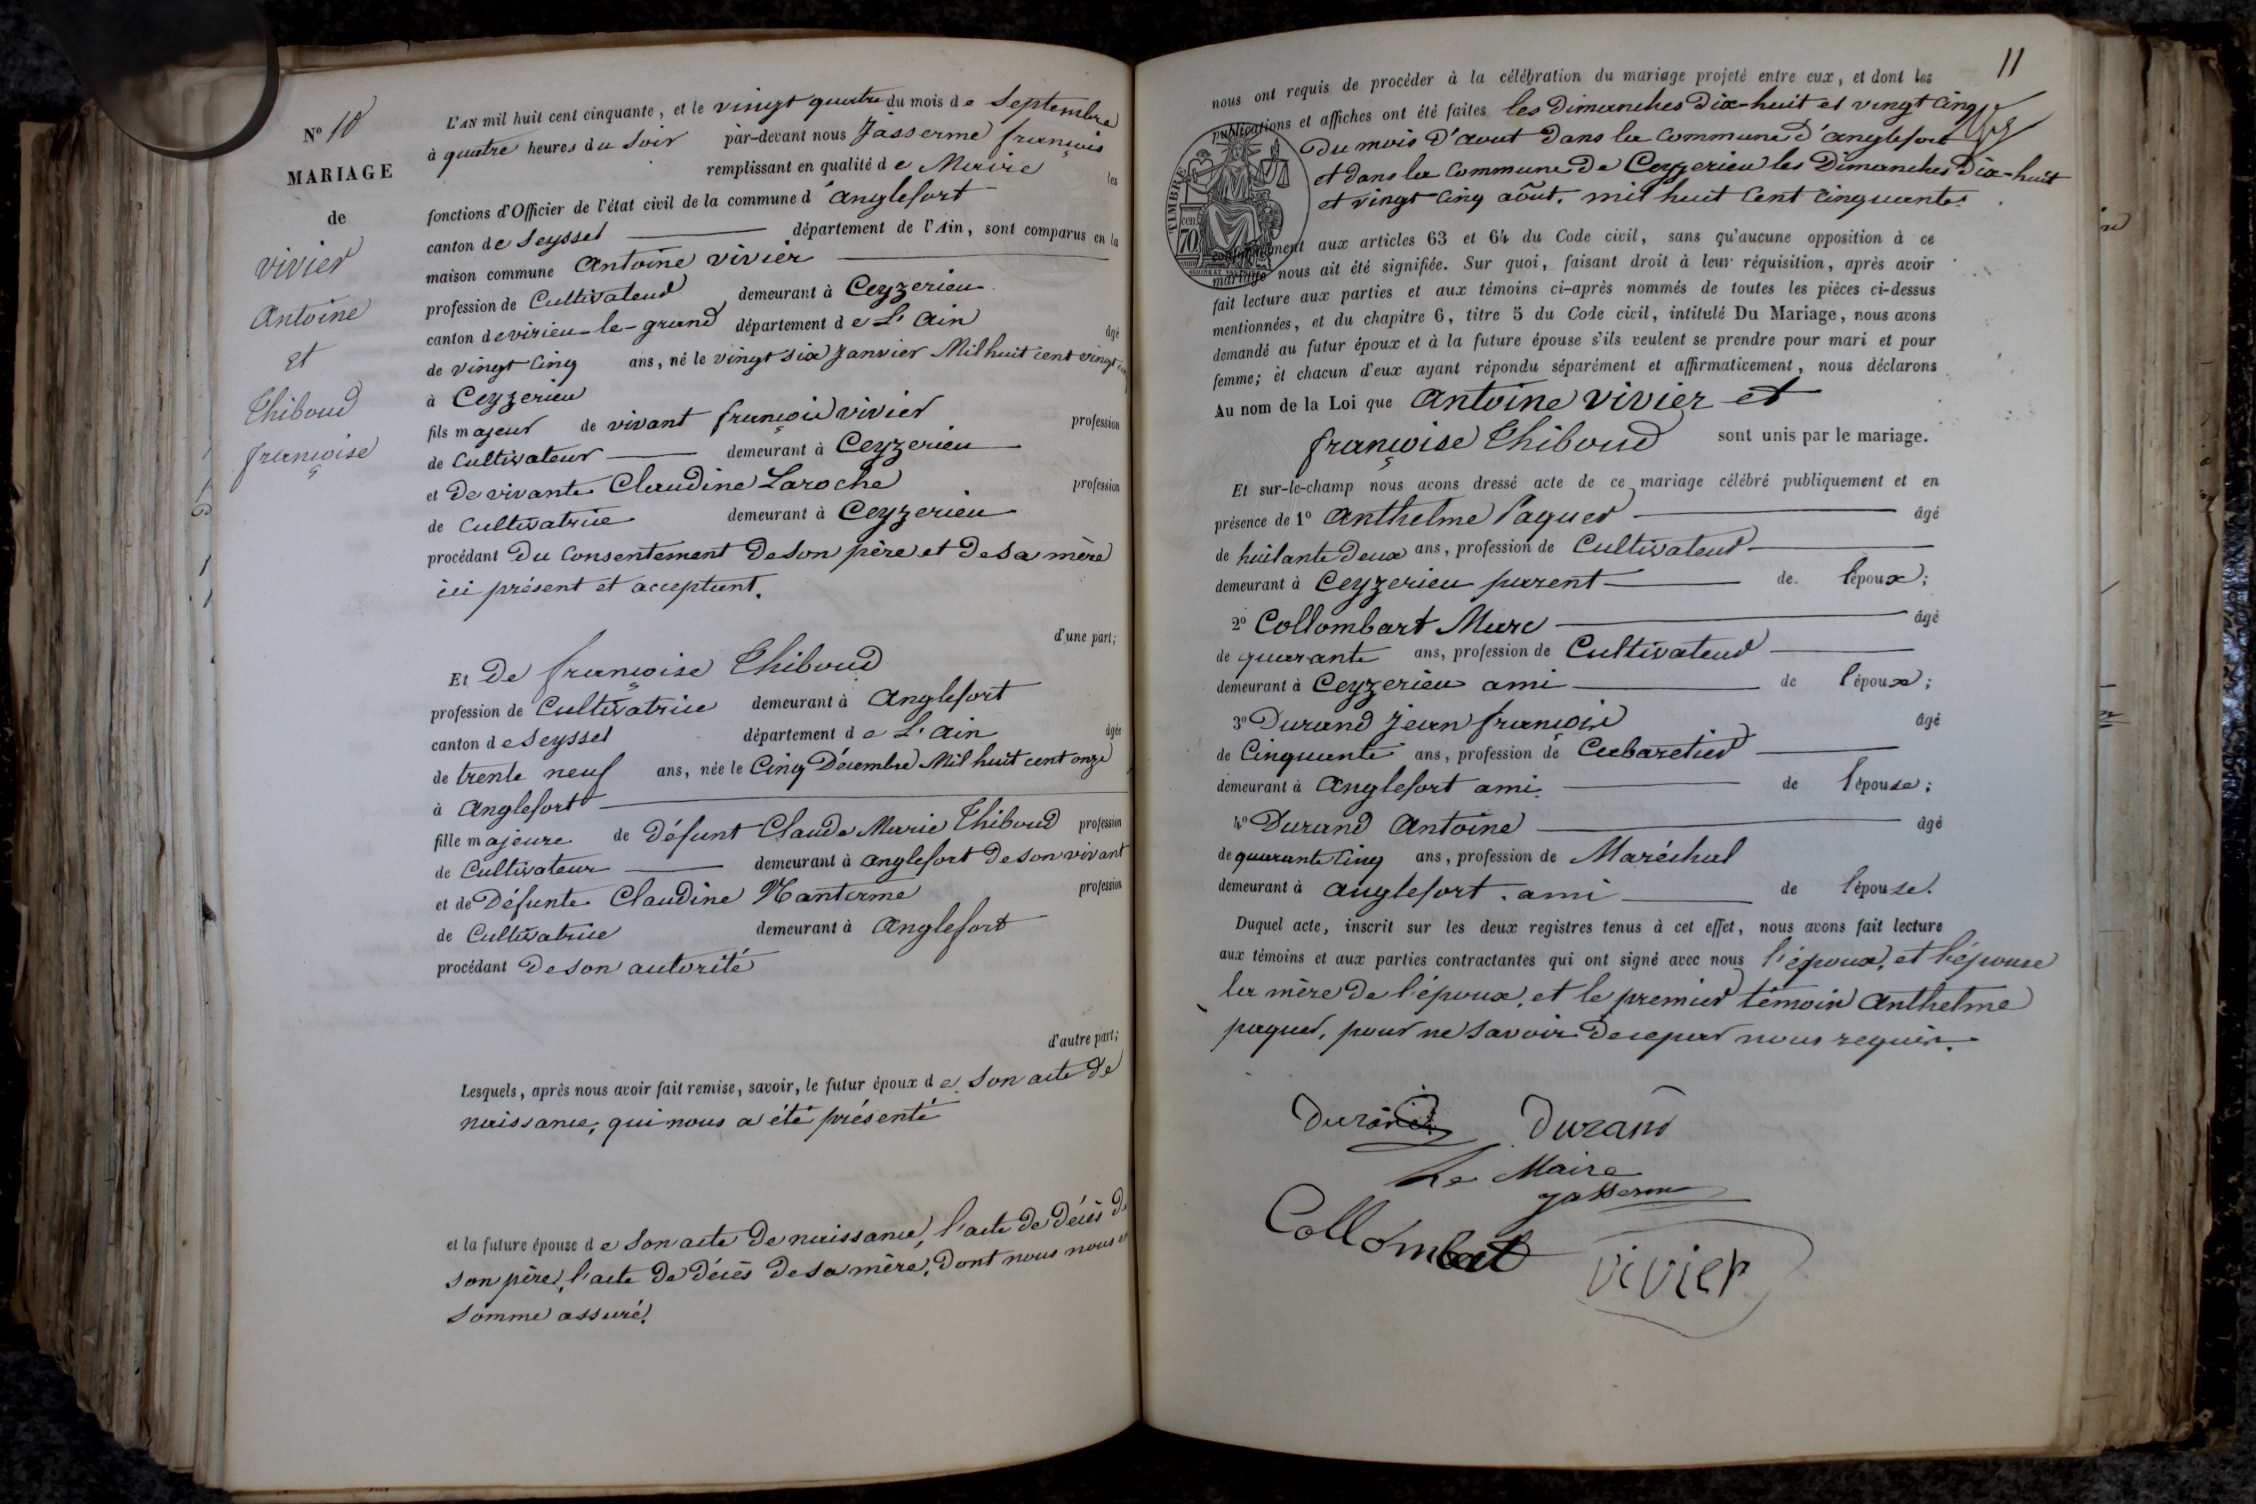 N° 10
MARIAGE
de
vivier
Antoine
et
Thiboud
françoise
L'AN mil huit cent cinquante, et le vingt quatre du mois de Septembre
à quatre heures du Soir par-devant nous Jasserme françois
remplissant en qualité de Maire les
fonctions d'Officier de l'état civil de la commune d'anglefort
canton de Seyssel département de l'Ain, sont comparus en la
maison commune Antoine vivier
profession de Cultivateur demeurant à Ceyzerieu
canton de virieu-le-grand département de L'Ain âgé
de vingt cinq ans, né le vingt six Janvier Mil huit cent vingt cinq
à Ceyzerieu
fils majeur de vivant françois vivier profession
de Cultivateur demeurant à Ceyzerieu
et de vivante Claudine Laroche profession
de Cultivatrice demeurant à Ceyzerieu
procédant du Consentement de son père et de sa mère
ici présent et acceptant.
d'une part;
Et De françoise Thiboud
profession de Cultivatrice demeurant à Anglefort
canton de Seyssel département de L'Ain âgée
de trente neuf ans, née le Cinq Décembre Mil huit cent onze
à Anglefort
fille majeure de défunt Claude Marie Thiboud profession
de Cultivateur demeurant à anglefort de son vivant
et de Défunte Claudine profession
de Cultivatrice demeurant à Anglefort
procédant de son autorité
d'autre part;
Lesquels, après nous avoir fait remise, savoir, le futur époux de son acte de
naissance, qui nous a été présenté
et la future épouse de son acte de naissance, l'acte de décès de
son père, l'acte de décès de sa mère, dont nous nous
somme assuré.
11
nous ont requis de procéder à la célébration du mariage projeté entre eux, et dont les
publications et affiches ont été faites les Dimanches Dix-huit et vingt Cinq
du mois d'aout dans la commune d'anglefort
et dans la commune de Ceyzerieu les Dimanches Dix-huit
et vingt Cinq aôut, mil huit Cent Cinquante.
TIMBRE
70
conformément aux articles 63 et 64 du Code civil, sans qu'aucune opposition à ce
mariage nous ait été signifiée. Sur quoi, faisant droit à leur réquisition, après avoir
fait lecture aux parties et aux témoins ci-après nommés de toutes les pièces ci-dessus
mentionnées, et du chapitre 6, titre 5 du Code civil, intitulé Du Mariage, nous avons
demandé au futur époux et à la future épouse s'ils veulent se prendre pour mari et pour
femme; et chacun d'eux ayant répondu séparément et affirmativement, nous déclarons
Au nom de la Loi que Antoine Vivier et
françoise Thiboud sont unis par le mariage.
Et sur-le-champ nous avons dressé acte de ce mariage célébré publiquement et en
présence de 1° Anthelme Paquer âgé
de huitante deux ans, profession de Cultivateur
demeurant à Ceyzerieu parent de l'époux;
2° Collombart Marc âgé
de quarante ans, profession de Cultivateur
demeurant à Ceyzerieu ami de l'époux;
3° Durand Jean françois âgé
de Cinquante ans, profession de Cabaretier
demeurant à Anglefort ami de l'épouse;
4° Durand Antoine âgé
de quarante Cinq ans, profession de Maréchal
demeurant à anglefort . ami de l'épouse.
Duquel acte, inscrit sur les deux registres tenus à cet effet, nous avons fait lecture
aux témoins et aux parties contractantes qui ont signé avec nous l'époux, et l'épouse
la mère de l'époux, et le premier témoin Anthelme
paquer, pour ne savoir de ce par nous requis.
Durand Durand
Le Maire
Jasserme
Collombart vivier